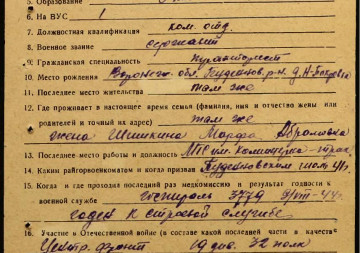 5. Образование
6. На ВУС 1
7. Должностная квалификация ком. отд.
8. Военное звание сержант
9. Гражданская специальность тракторист
10. Место рождения Воронеж. обл. р-н. д. Н-Покровка
11. Последнее место жительства там же
12. Где проживает в настоящее время семья (фамилия, имя и отчество жены или
родителей и точный их адрес) там же
жена Шишкина Марфа
13. Последнее место работы и должность МТС им. Коминтерна
14. Каким райгорвоенкоматом и когда призван
15. Когда и где проходил последний раз медкомиссию и результат годности к
военной службе 3779 9/VIII-44
годен к строевой службе
16. Участие в Отечественной войне (в составе какой последней части и в качестве
Центр. фронт 19 див. 32 полк